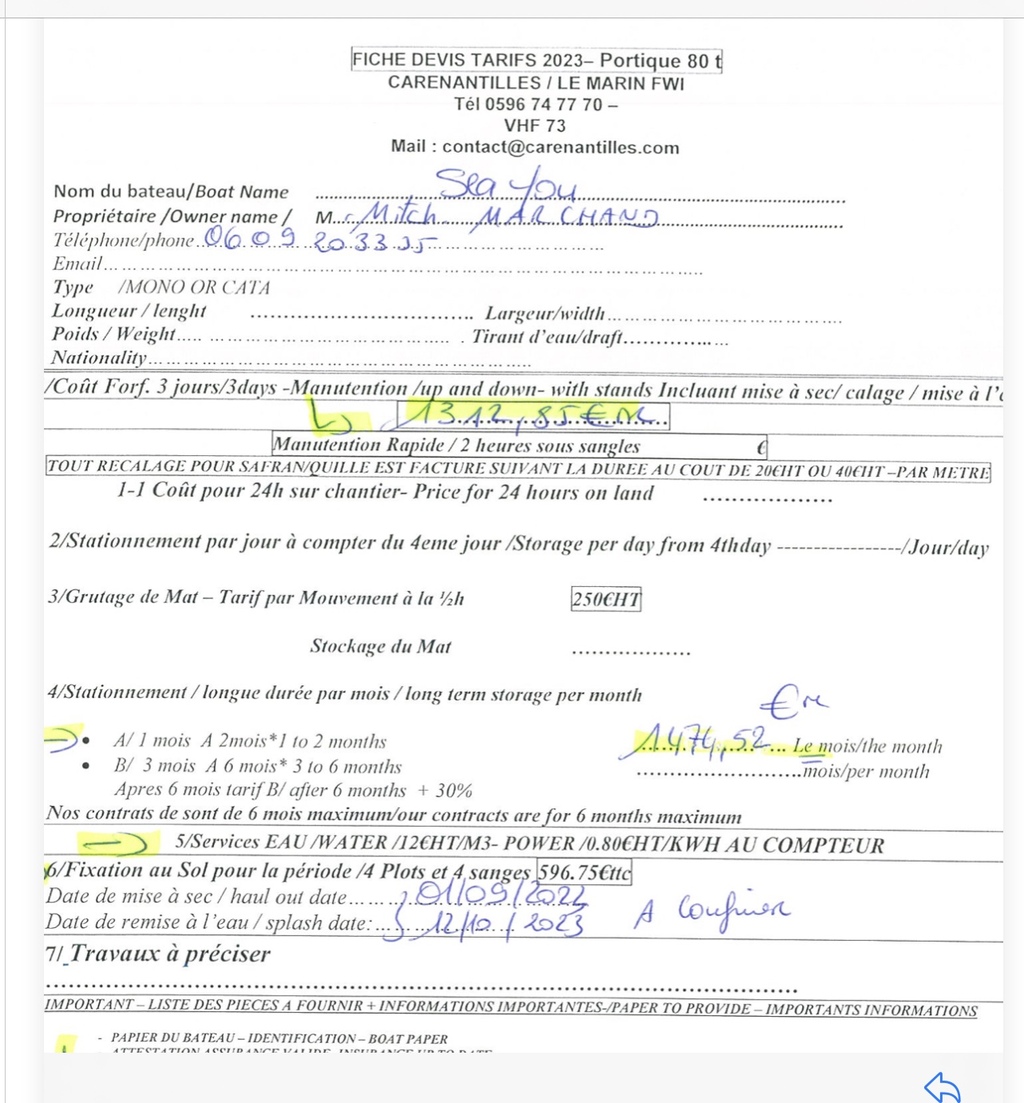 FICHE DEVIS TARIFS 2023– Portique 80 t
CARENANTILLES / LE MARIN FWI
Tél 0596 74 77 70 –
VHF 73
Mail : contact@carenantilles.com
Nom du bateau/Boat Name ........ Sea You
Propriétaire /Owner name / M... Mitch MARCHAND
Téléphone/phone 06 09 20 33 35
Email........
Type /MONO OR CATA
Longueur / lenght ........ Largeur/width........
Poids / Weight........ Tirant d'eau/draft........
Nationality........
/Coût Forf. 3 jours/3days -Manutention /up and down- with stands Incluant mise à sec/ calage / mise à l'
1312,85€
Manutention Rapide / 2 heures sous sangles €
TOUT RECALAGE POUR SAFRAN/QUILLE EST FACTURE SUIVANT LA DUREE AU COUT DE 20€HT OU 40€HT –PAR METRE
1-1 Coût pour 24h sur chantier- Price for 24 hours on land ........
2/Stationnement par jour à compter du 4eme jour /Storage per day from 4thday -----------------/Jour/day
3/Grutage de Mat – Tarif par Mouvement à la ½h 250€HT
Stockage du Mat ........
4/Stationnement / longue durée par mois / long term storage per month
€
• A/ 1 mois A 2mois*1 to 2 months 1474,52... Le mois/the month
• B/ 3 mois A 6 mois* 3 to 6 months ........mois/per month
Apres 6 mois tarif B/ after 6 months + 30%
Nos contrats de sont de 6 mois maximum/our contracts are for 6 months maximum
5/Services EAU /WATER /12€HT/M3- POWER /0.80€HT/KWH AU COMPTEUR
6/Fixation au Sol pour la période /4 Plots et 4 sanges 596.75€ttc
Date de mise à sec / haul out date........ 01/09/2022
Date de remise à l'eau / splash date:... 12/10/2023 A Confirmer
7/ Travaux à préciser
........
IMPORTANT – LISTE DES PIECES A FOURNIR + INFORMATIONS IMPORTANTES-/PAPER TO PROVIDE – IMPORTANTS INFORMATIONS
- PAPIER DU BATEAU – IDENTIFICATION – BOAT PAPER